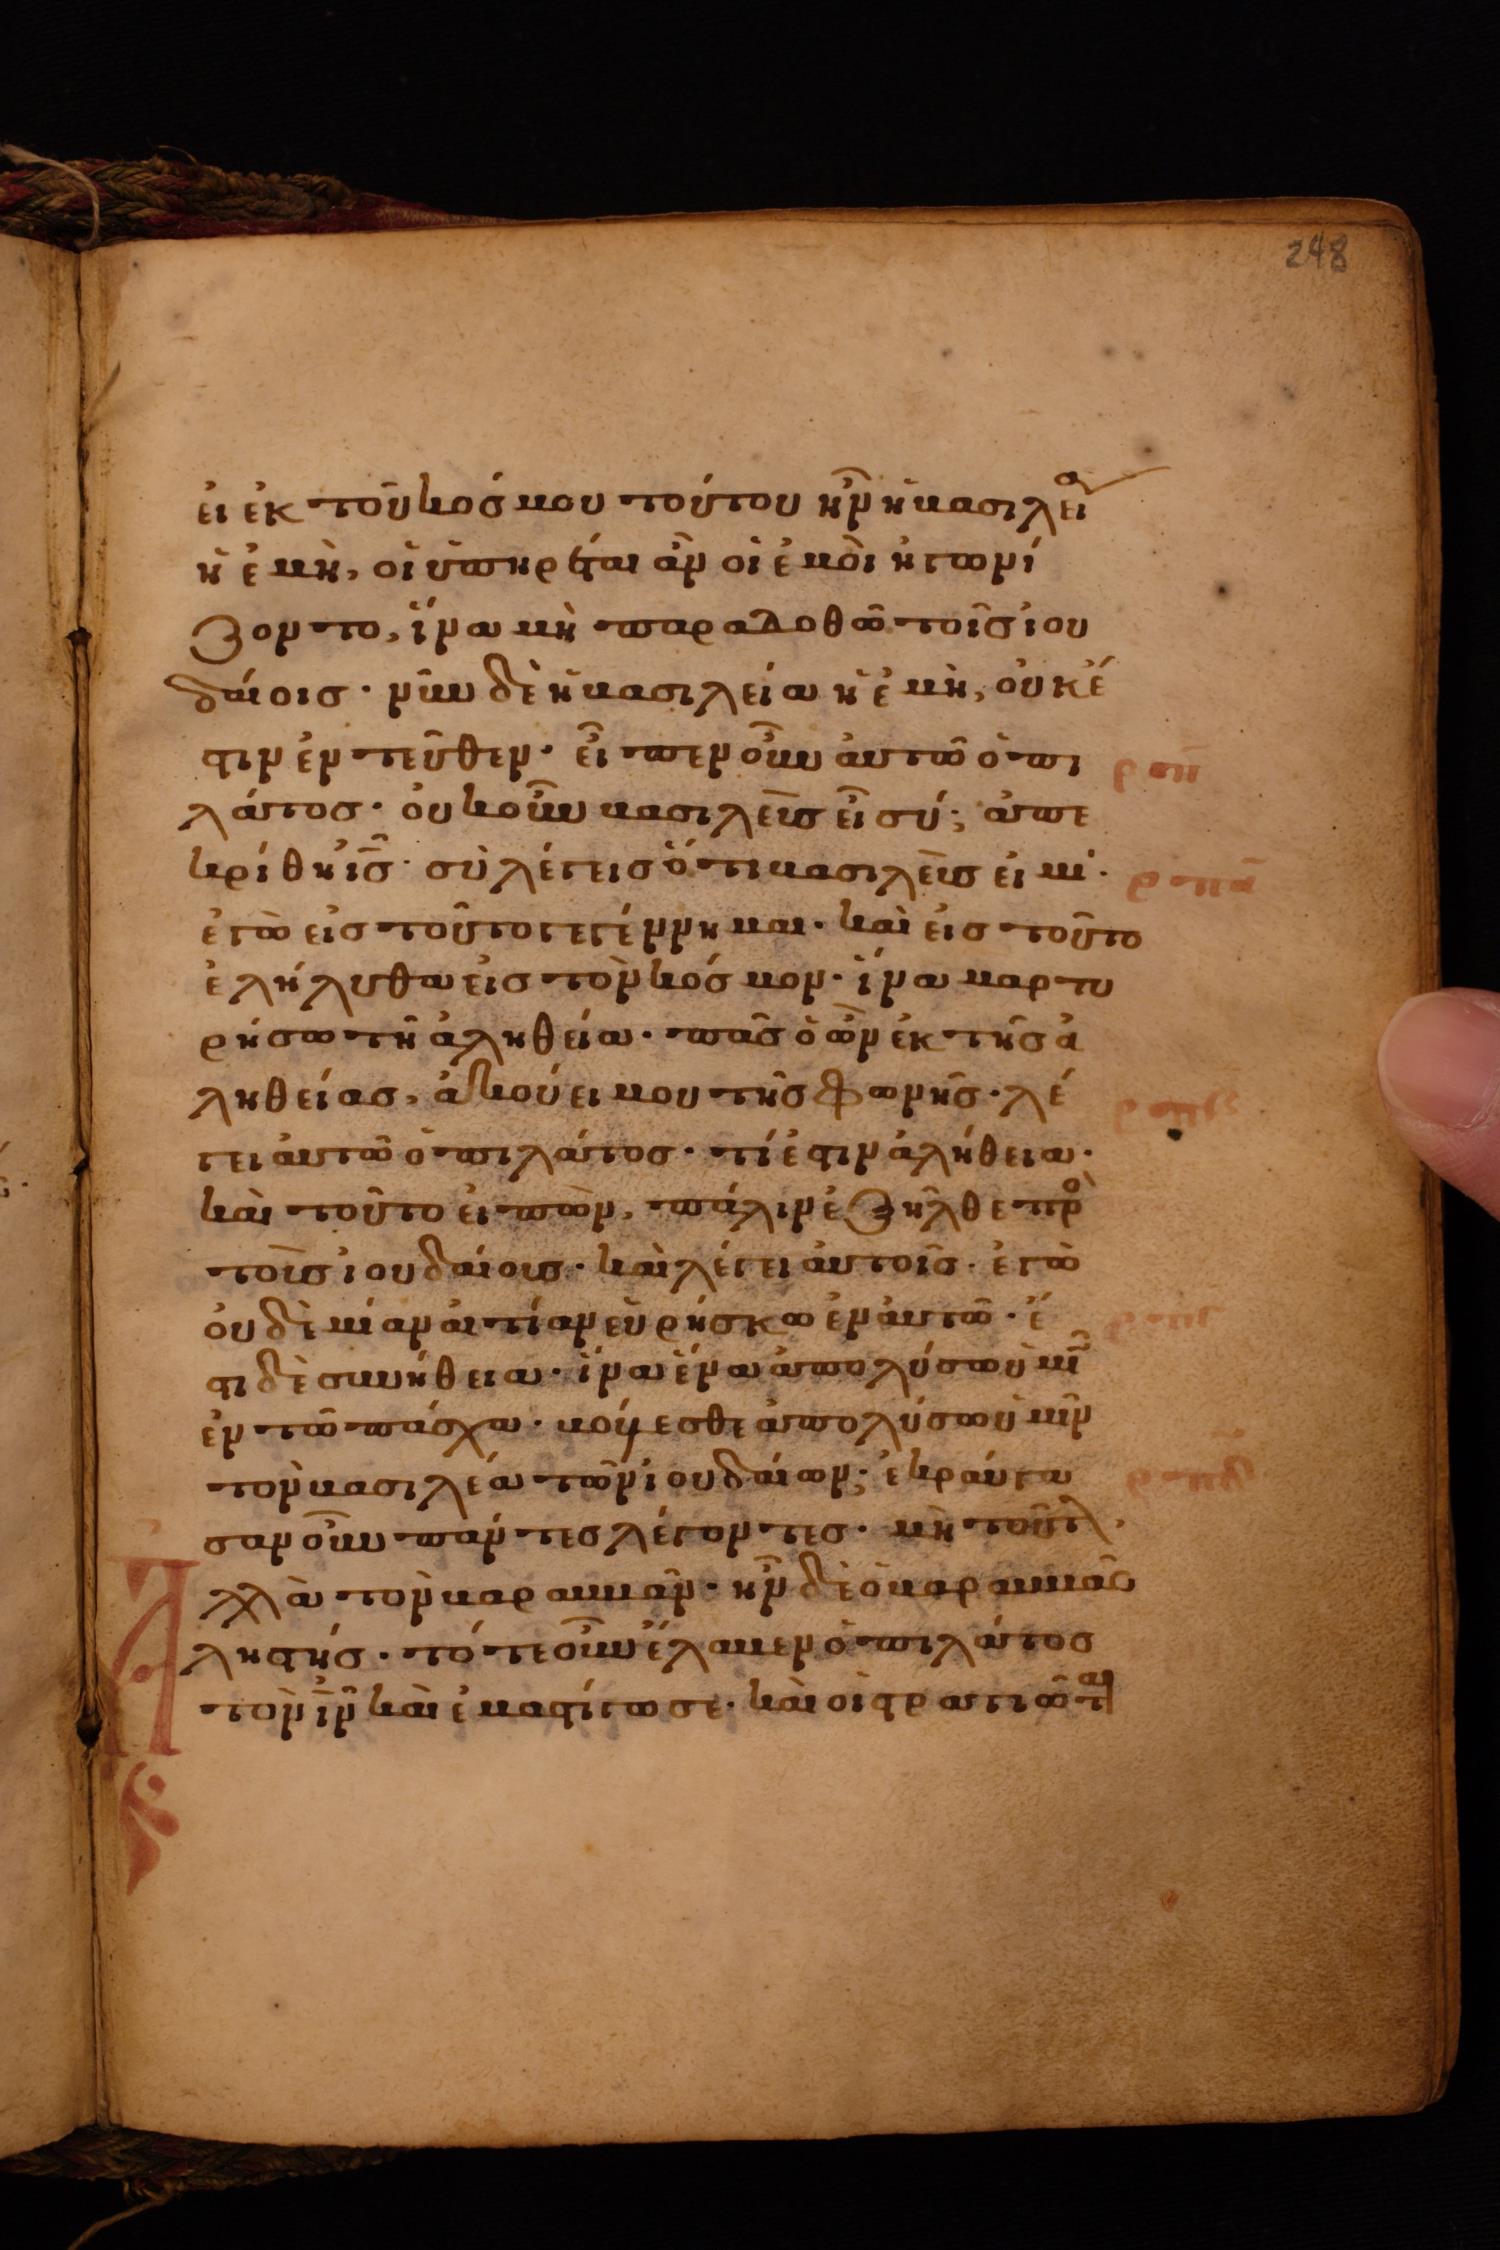 248
εἰ ἐκ τοῦ κόσμου τούτου ἦν ἡ βασιλεί^α
ἡ ἐμὴ, οἱ ὑπηρέται ἂν οἱ ἐμοὶ ἠγωνί
ζοντο, ἵνα μὴ παραδοθῶ τοῖς ἰου
δαίοις · νῦν δὲ ἡ βασιλεία ἡ ἐμὴ, οὐκ ἔ
στιν ἐντεῦθεν · εἶπεν οὖν αὐτῶ ὁ πι
λάτος · οὐκοῦν βασιλεὺς εἶ σύ; ἀπε
κρίθη ἰς̅ · σὺ λέγεις ὅτι βασιλεὺς εἰμί ·
ἐγὼ εἰς τοῦτο γεγέννημαι · καὶ εἰς τοῦτο
ἐλήλυθα εἰς τὸν κόσμον · ἵνα μαρτυ
ρήσω τῆ ἀληθεία · πᾶς ὁ ὢν ἐκ τῆς ἀ
ληθείας, ἀκούει μου τῆς φωνῆς · λέ
γει αὐτῶ ὁ πιλάτος · τί ἐστιν ἀλήθεια ·
καὶ τοῦτο εἰπὼν, πάλιν ἐξῆλθε πρ^ὸ
τοὺς ἰουδαίους · καὶ λέγει αὐτοῖς · ἐγὼ
οὐδεμίαν αἰτίαν εὑρήσκω ἐν αὐτῶ · ἔ
στι δὲ συνήθεια · ἵνα ἕνα ἀπολύσω ὑμῖ
ἐν τῶ πάσχα · βούλεσθε ἀπολύσω ὑμῖν
τὸν βασιλέα τῶν ἰουδαίων; ἐκραύγα
σαν οὖν πάντες λέγοντες · μὴ τοῦτ
λλὰ τὸν βαραββᾶν · ἦν δὲ ὁ βαραββᾶς
ληστής · τότε οὖν ἔλαβεν ὁ πιλάτος
τὸν ἰν̅ καὶ ἐμαστίγωσε · καὶ οἱ στρατιῶτ^αι